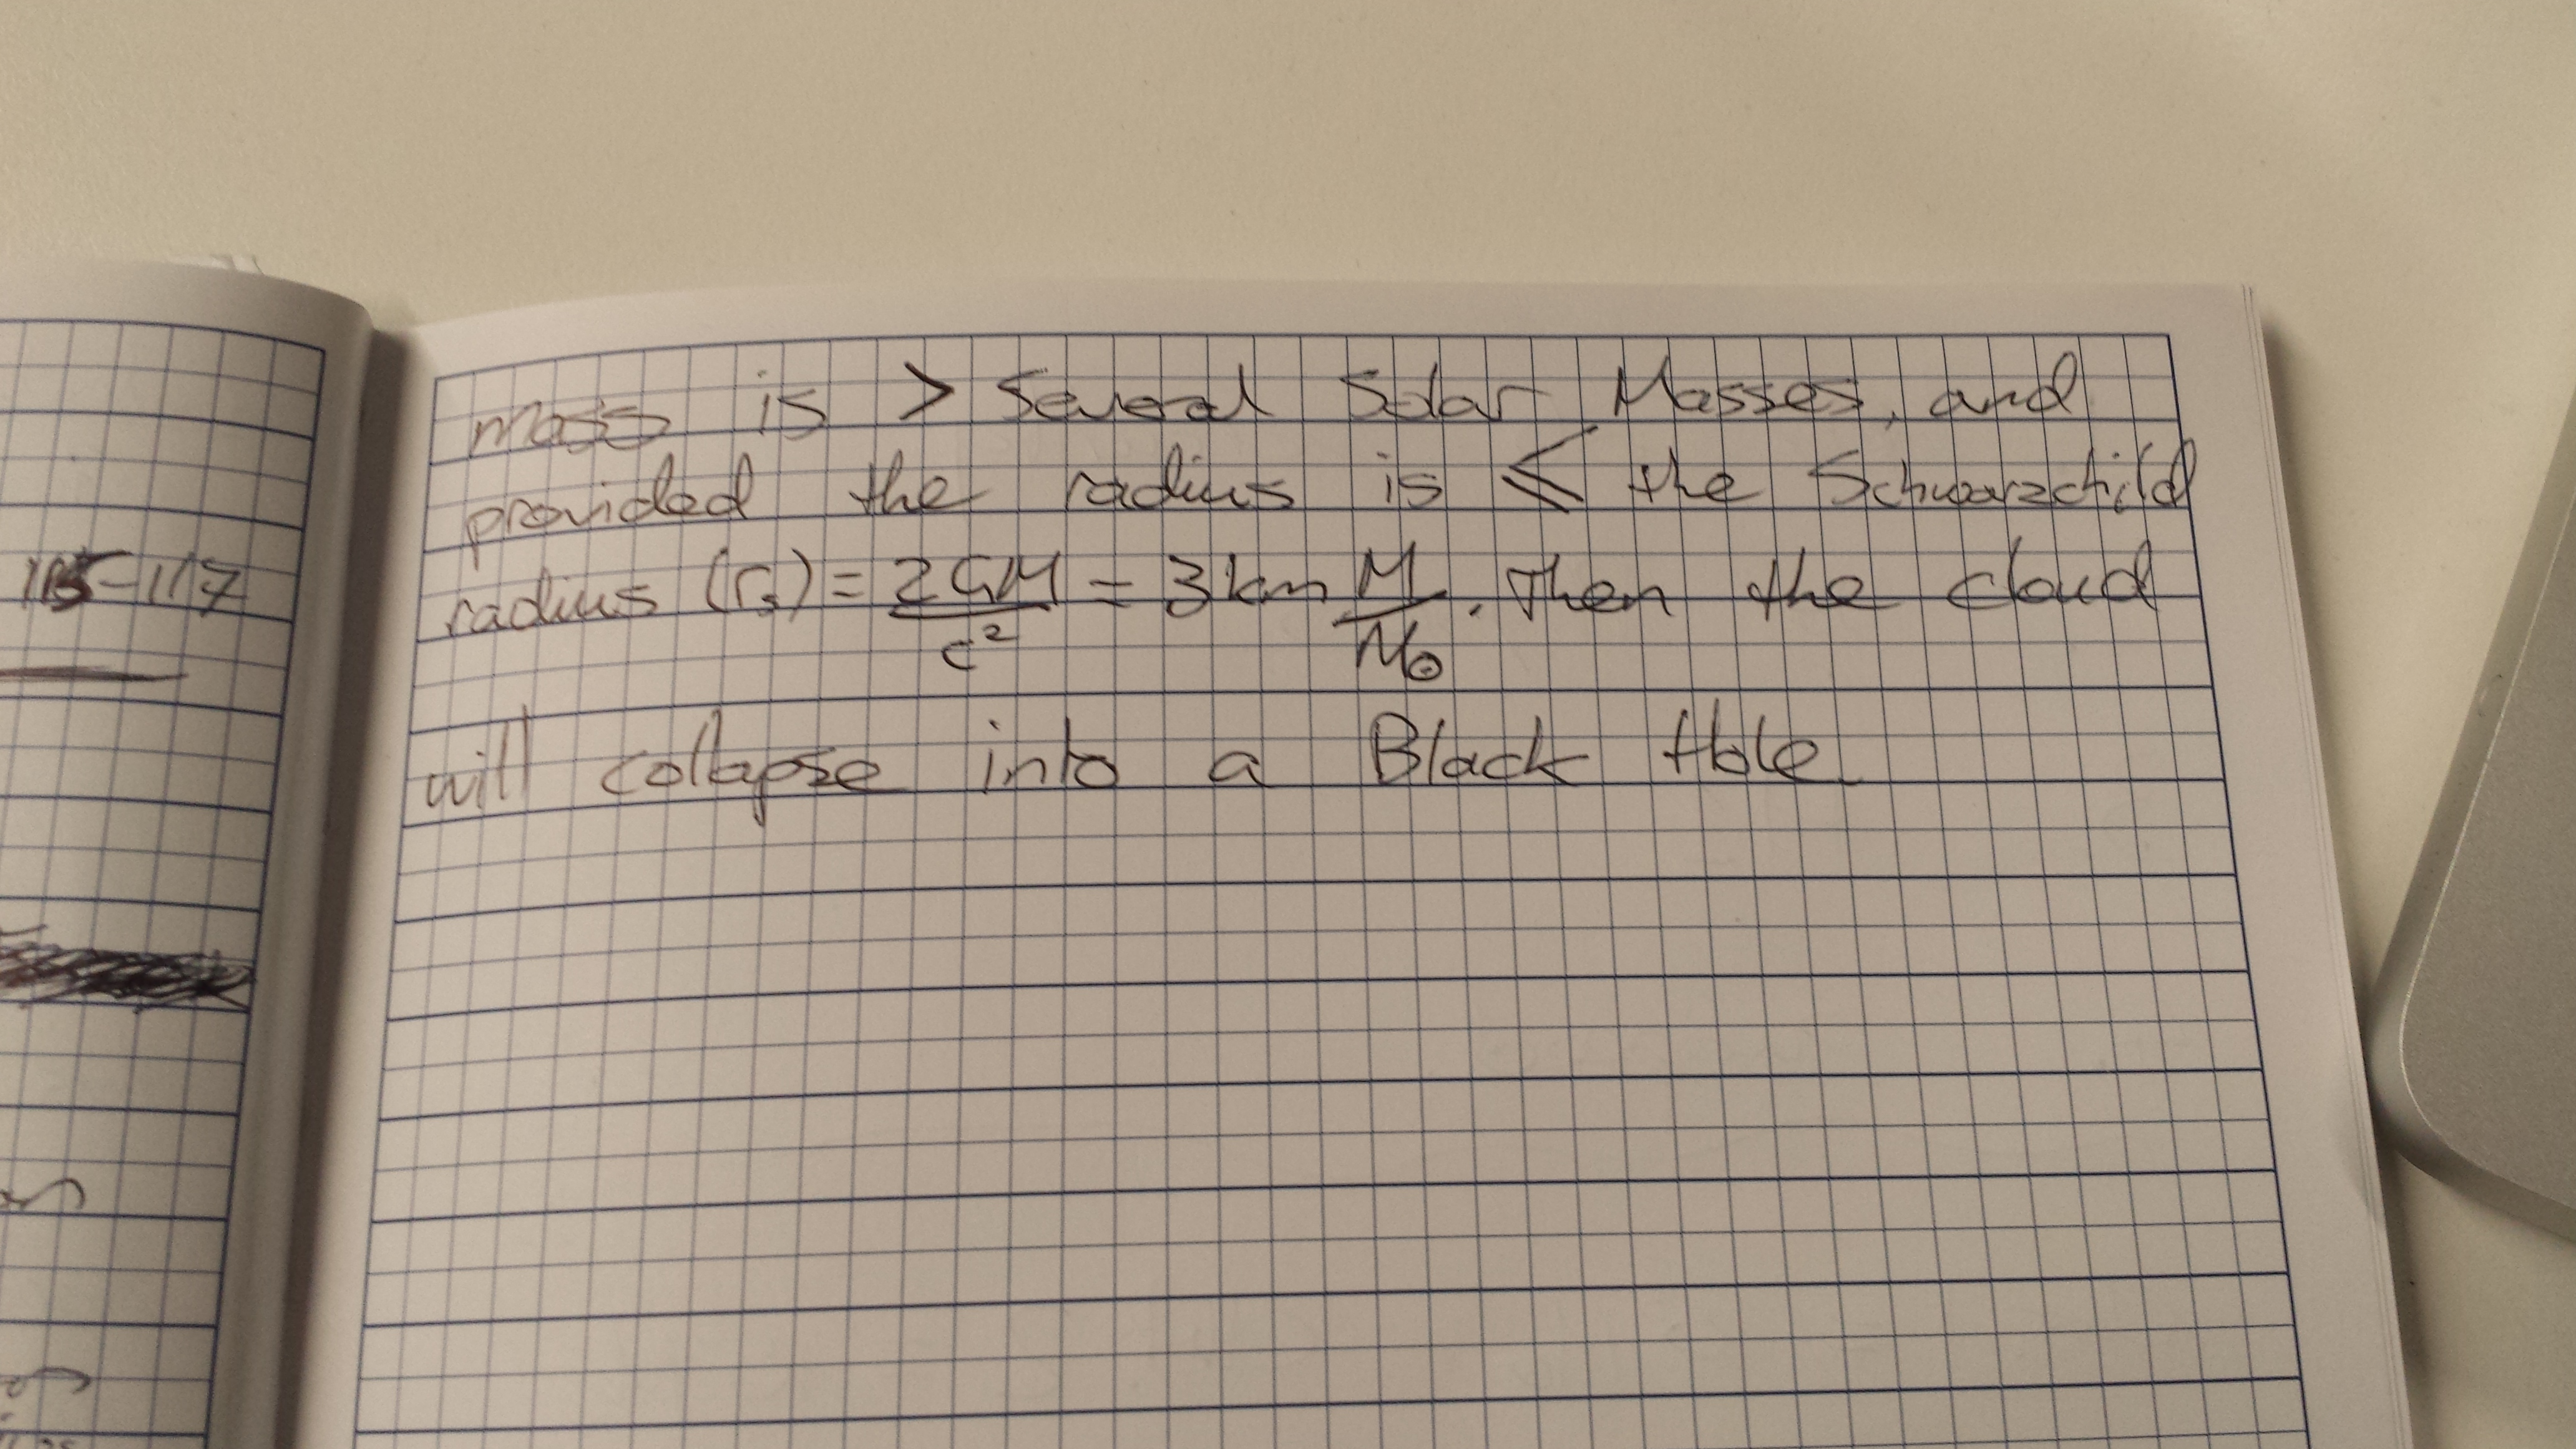 115-117
mass is > several Solar Masses, and
provided the radius is ≤ the Schwarzchild
radius (rs) = 2GM/c² = 3km M/M⊙. Then the cloud
will collapse into a Black Hole